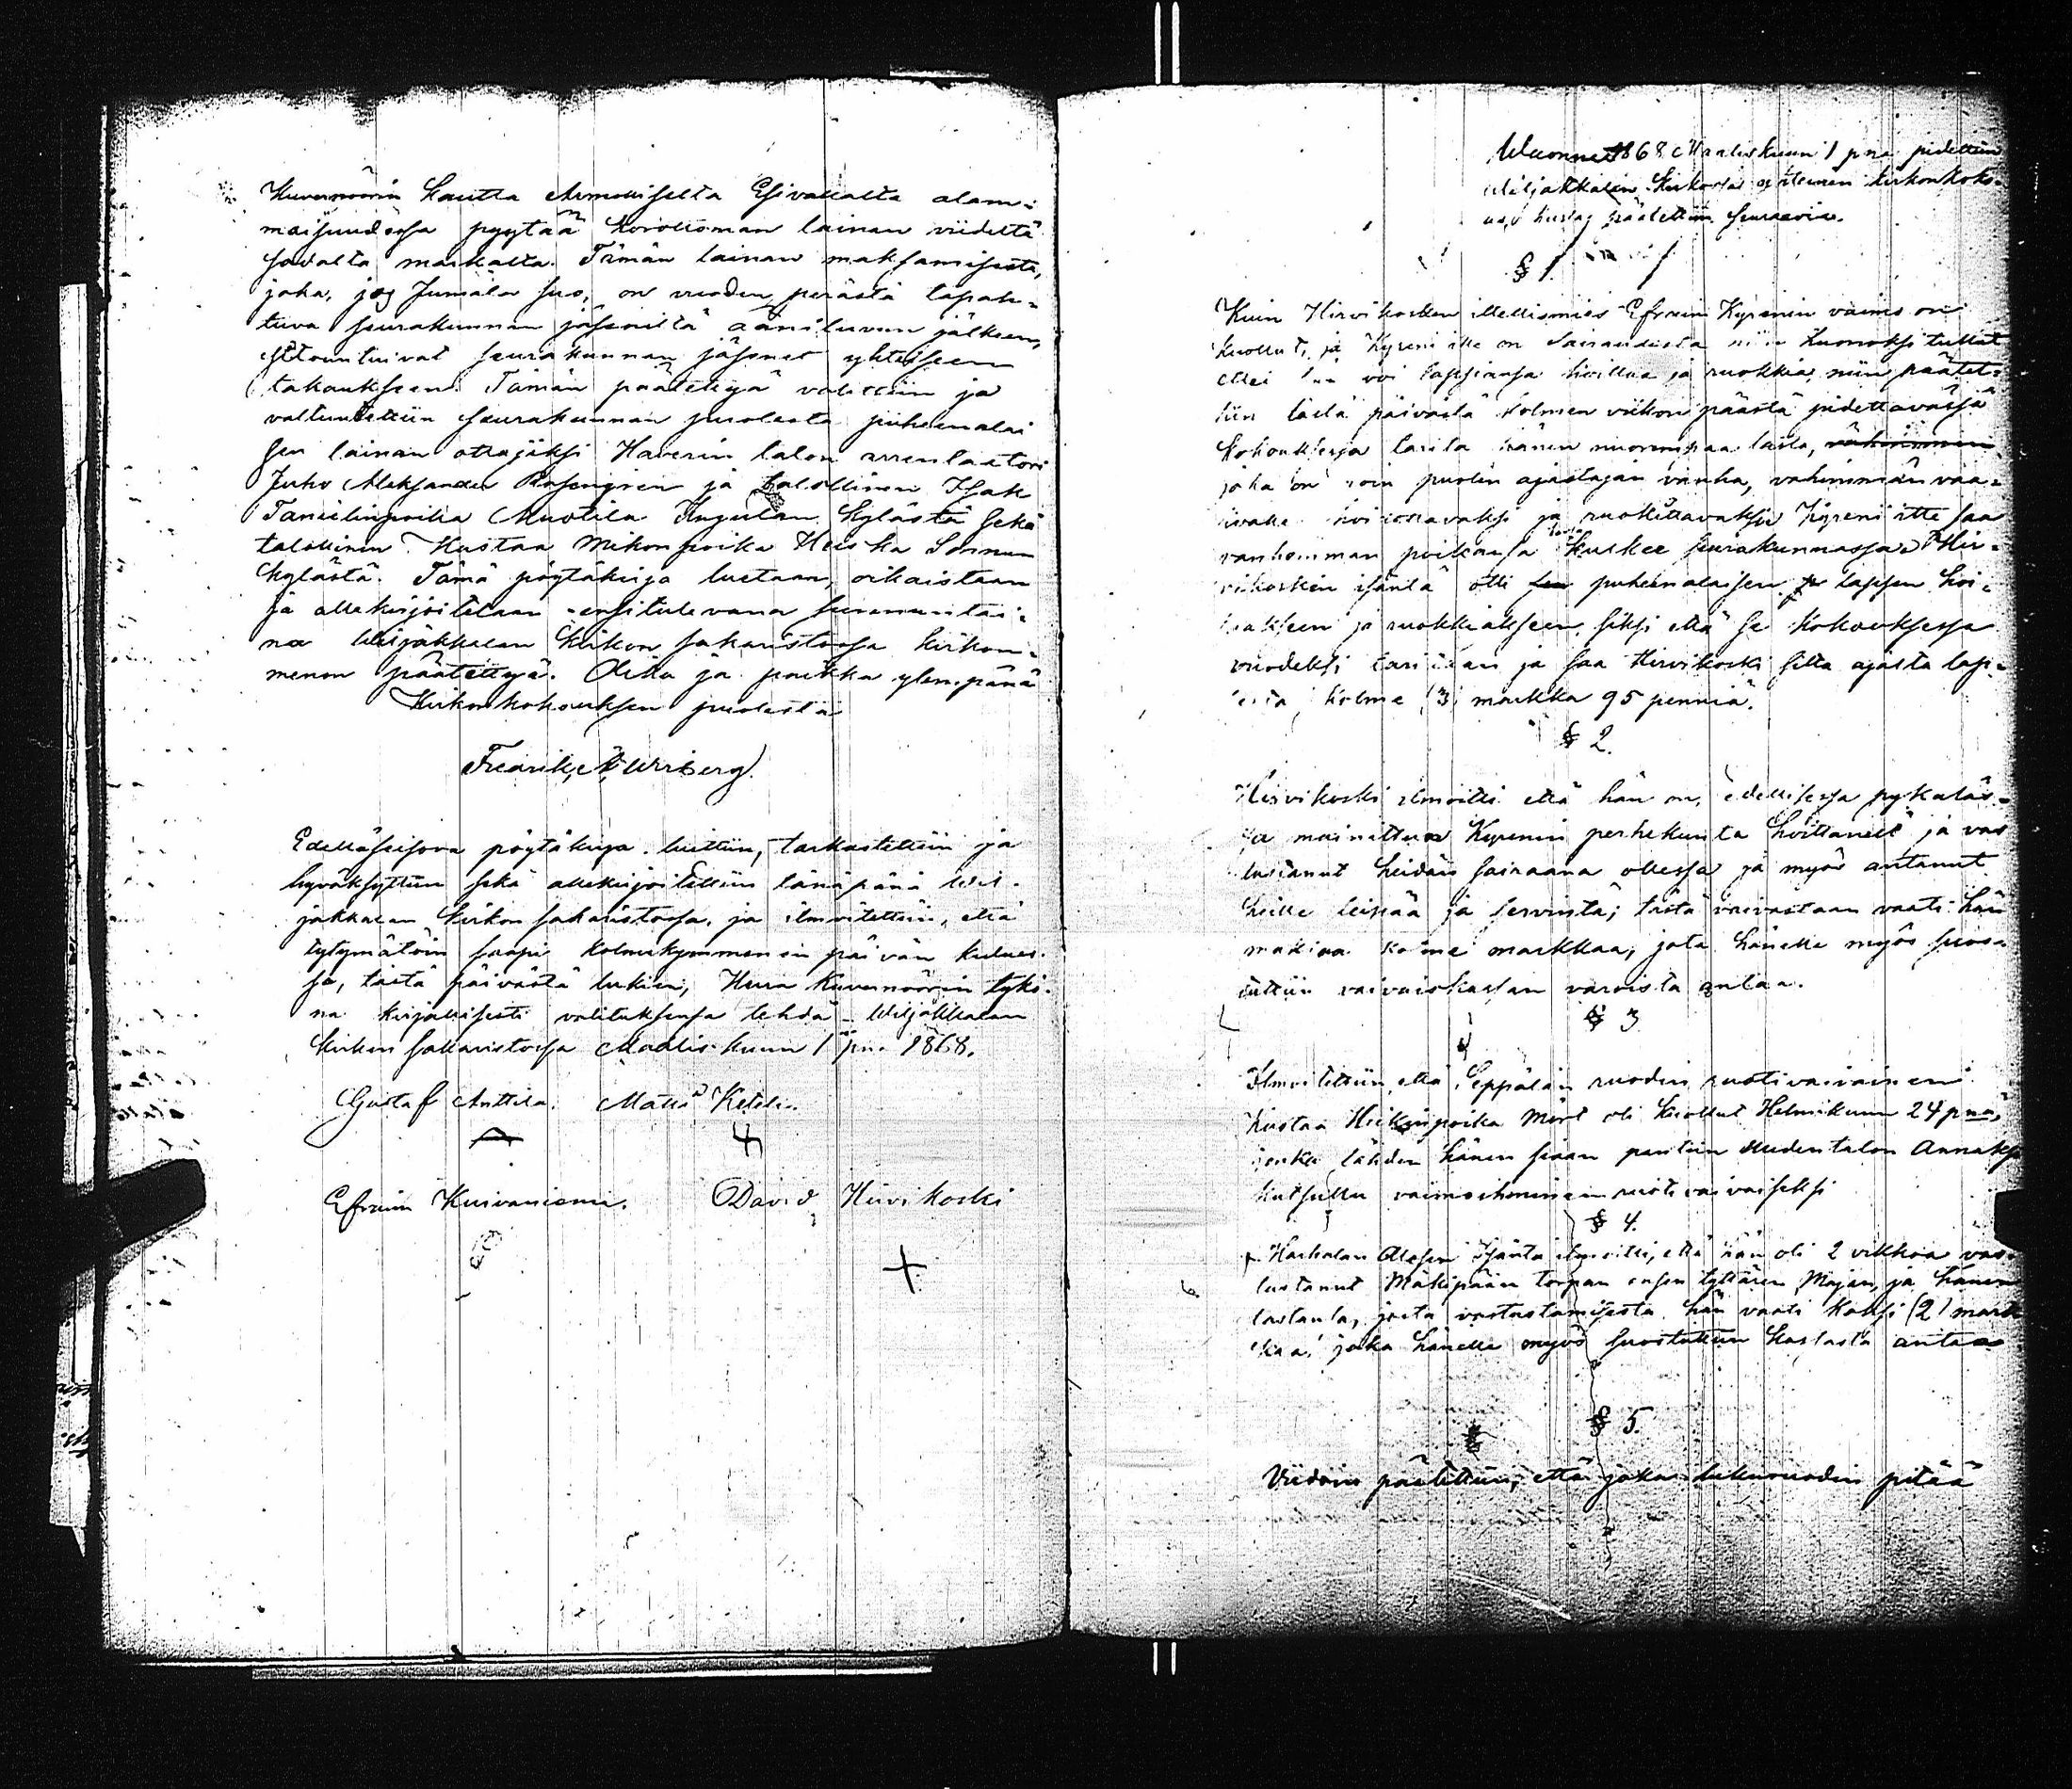 Kuvernöörin kautta Armolliselta Esivallalta alam-
maisuudessa pyytää korottoman lainan viideltä
sadalta markalta. Tämän lainan maksamisesta,
joka, jos Jumala suo, on vuoden perästä tapah-
tuva seurakunnan jäseniltä ääniluvun jälkeen,
ittountuivat seurakunnan jäsenet yhteiseen
takaukseen. Tämän päätettyä valittiin ja
valtuutettiin seurakunnan puolesta puheenalai
sen lainan ottajaksi Haverin talon arrentaatori
Juho Aleksander Rosengren ja talollinen Isak
Tanelinpoika Muotila Inkulan kylästä sekä
talollinen Kustaa Mikonpoika Heiska Sonnun
kylästä. Tämä pöytäkirja luetaan, oikaistaan
ja allekirjoitetaan ensitulevana sunnuntai-
na Wiljakkalan kirkon sakaristossa kirkon-
menon päätettyä. Aika ja paikka ylempänä
Kirkonkokouksen puolesta
Fredrik
Edelläseisova pöytäkirja luettiin, tarkastettiin ja
hyväksyttiin sekä allekirjoitettiin tänäpänä Wil-
jakkalan kirkon sakaristossa, ja ilmoitettiin, että
tytymätöin saapi kolmenkymmenen päivän kulues-
sa, tästä päivästä lukein, Herra Kuvernöörin tykö-
nä kirjallisesti valituksensa tehdä. Wiljakkalan
kirkon sakaristossa Maaliskuun 1 pnä 1868.
Gustaf Anttila. Matts Ketola.
Efraim Kuivaniemi. David Hirvikoski
Wuonna 1868 Maaliskuun 1 pnä pidettiin
Wiljakkalan kirkossa yhteinen kirkonkoko-
us, kussa päätettiin seuraavia.
§ 1.
Kuin Hirvikosken itellismies Efraim Kyrenin vaimo on
kuollut, ja Kyreni itte on sairaudesta niin huonoksi tullut
ettei hän voi lapsiansa hoittaa ja ruokkia, niin päätet-
tiin tästä päivästä kolmen viikon päästä pidettävässä
kokouksessa tarita hänen nuorempaa lasta, vähimmän
joka on noin puolen ajastajan vanha, vähimmän vaa-
tivalle hoitettavaksi ja ruokittavaksi Kyreni itte saa
vanhemman poikansa kanssa kulkee seurakunnassa. Hir-
vikosken isäntä otti sen puheenalaisen lapsen hoi-
taakseen ja ruokkiakseen, siksi että se kokouksessa
vuodeksi taritaan ja saa Hirvikoski siltä ajasta lap-
sesta kolme (3) markka 95 penniä.
§ 2.
Hirvikoski ilmoitti että hän on edellisessä pykäläs-
sä mainittua Kyrenin perhekunta hoittanut ja vas
tustanut heidän sairaana ollessa ja myös antanut
heille leipää ja särvintä; tästä vaivastaan vaati hän
maksua kolme markkaa, jota hänelle myös suos-
tuttiin vaivaiskassan varoista antaa.
§ 3
Ilmoitettiin, että Seppälän ruodun ruotivaivainen
Kustaa Heikinpoika Mört oli kuollut Helmikuun 24 pnä,
jonka tähden hänen siaan pantiin Uudentalon Annaksi
kutsuttu vaimoihminen ruotivaivaiseksi
§ 4.
Harhalan Alasen isäntä ilmoitti, että hän oli 2 viikkoa vas-
tustanut Mäkipään torpan entisen tyttären Majan, ja hänen
lastansa, josta vastustamisesta hän vaati kaksi (2) mark
kaa, joka hänelle myös suostuttiin kassasta antaa
§ 5.
Viidöin päätettiin, että joka lukuruodin pitää